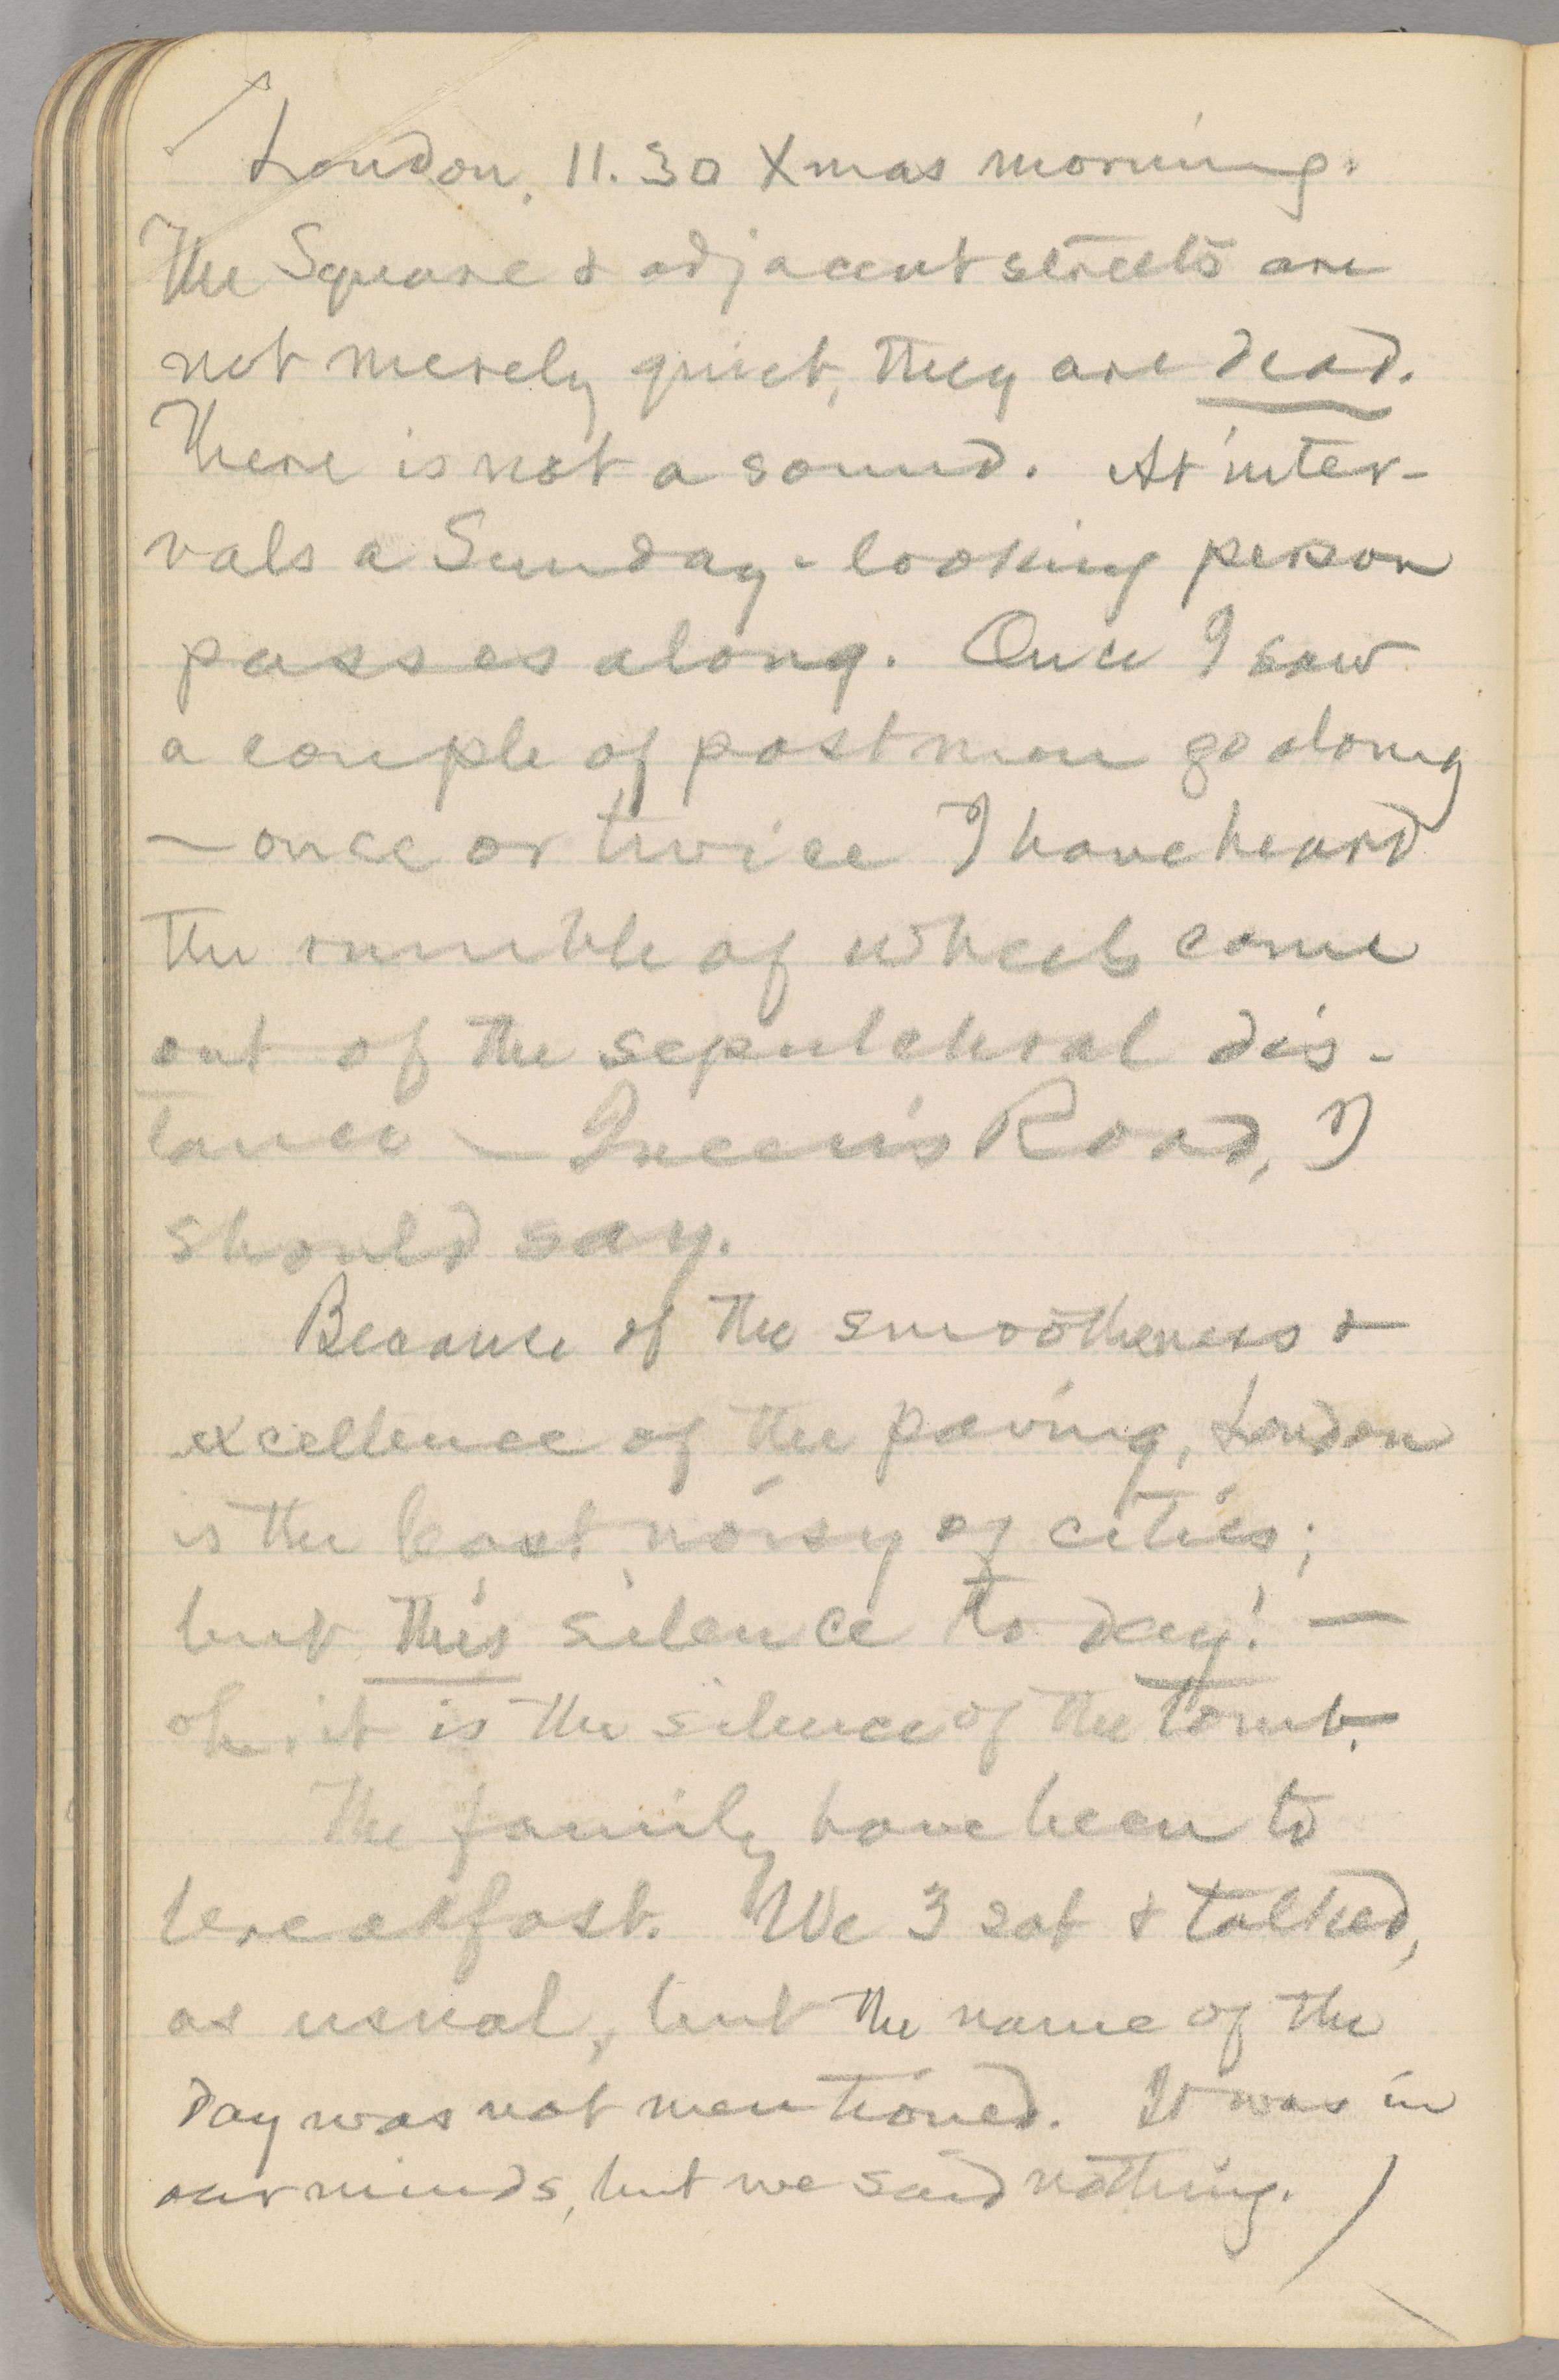 London, 11.30 Xmas morning.
The Square & adjacent streets are
not merely quiet, they are dead.
There is not a sound. At inter-
vals a Sunday-looking person
passes along. Once I saw
a couple of postmen go along
— once or twice I have heard
the rumble of wheels come
out of the sepulchral dis-
tance — Queen's Road, I
should say.
Because of the smootheness &
excellence of the paving, London
is the least noisy of cities;
but this silence to-day! —
oh, it is the silence of the tomb.
The family have been to
breakfast. We 3 sat & talked,
as usual, but the name of the
day was not mentioned. It was in
our minds, but we said nothing.